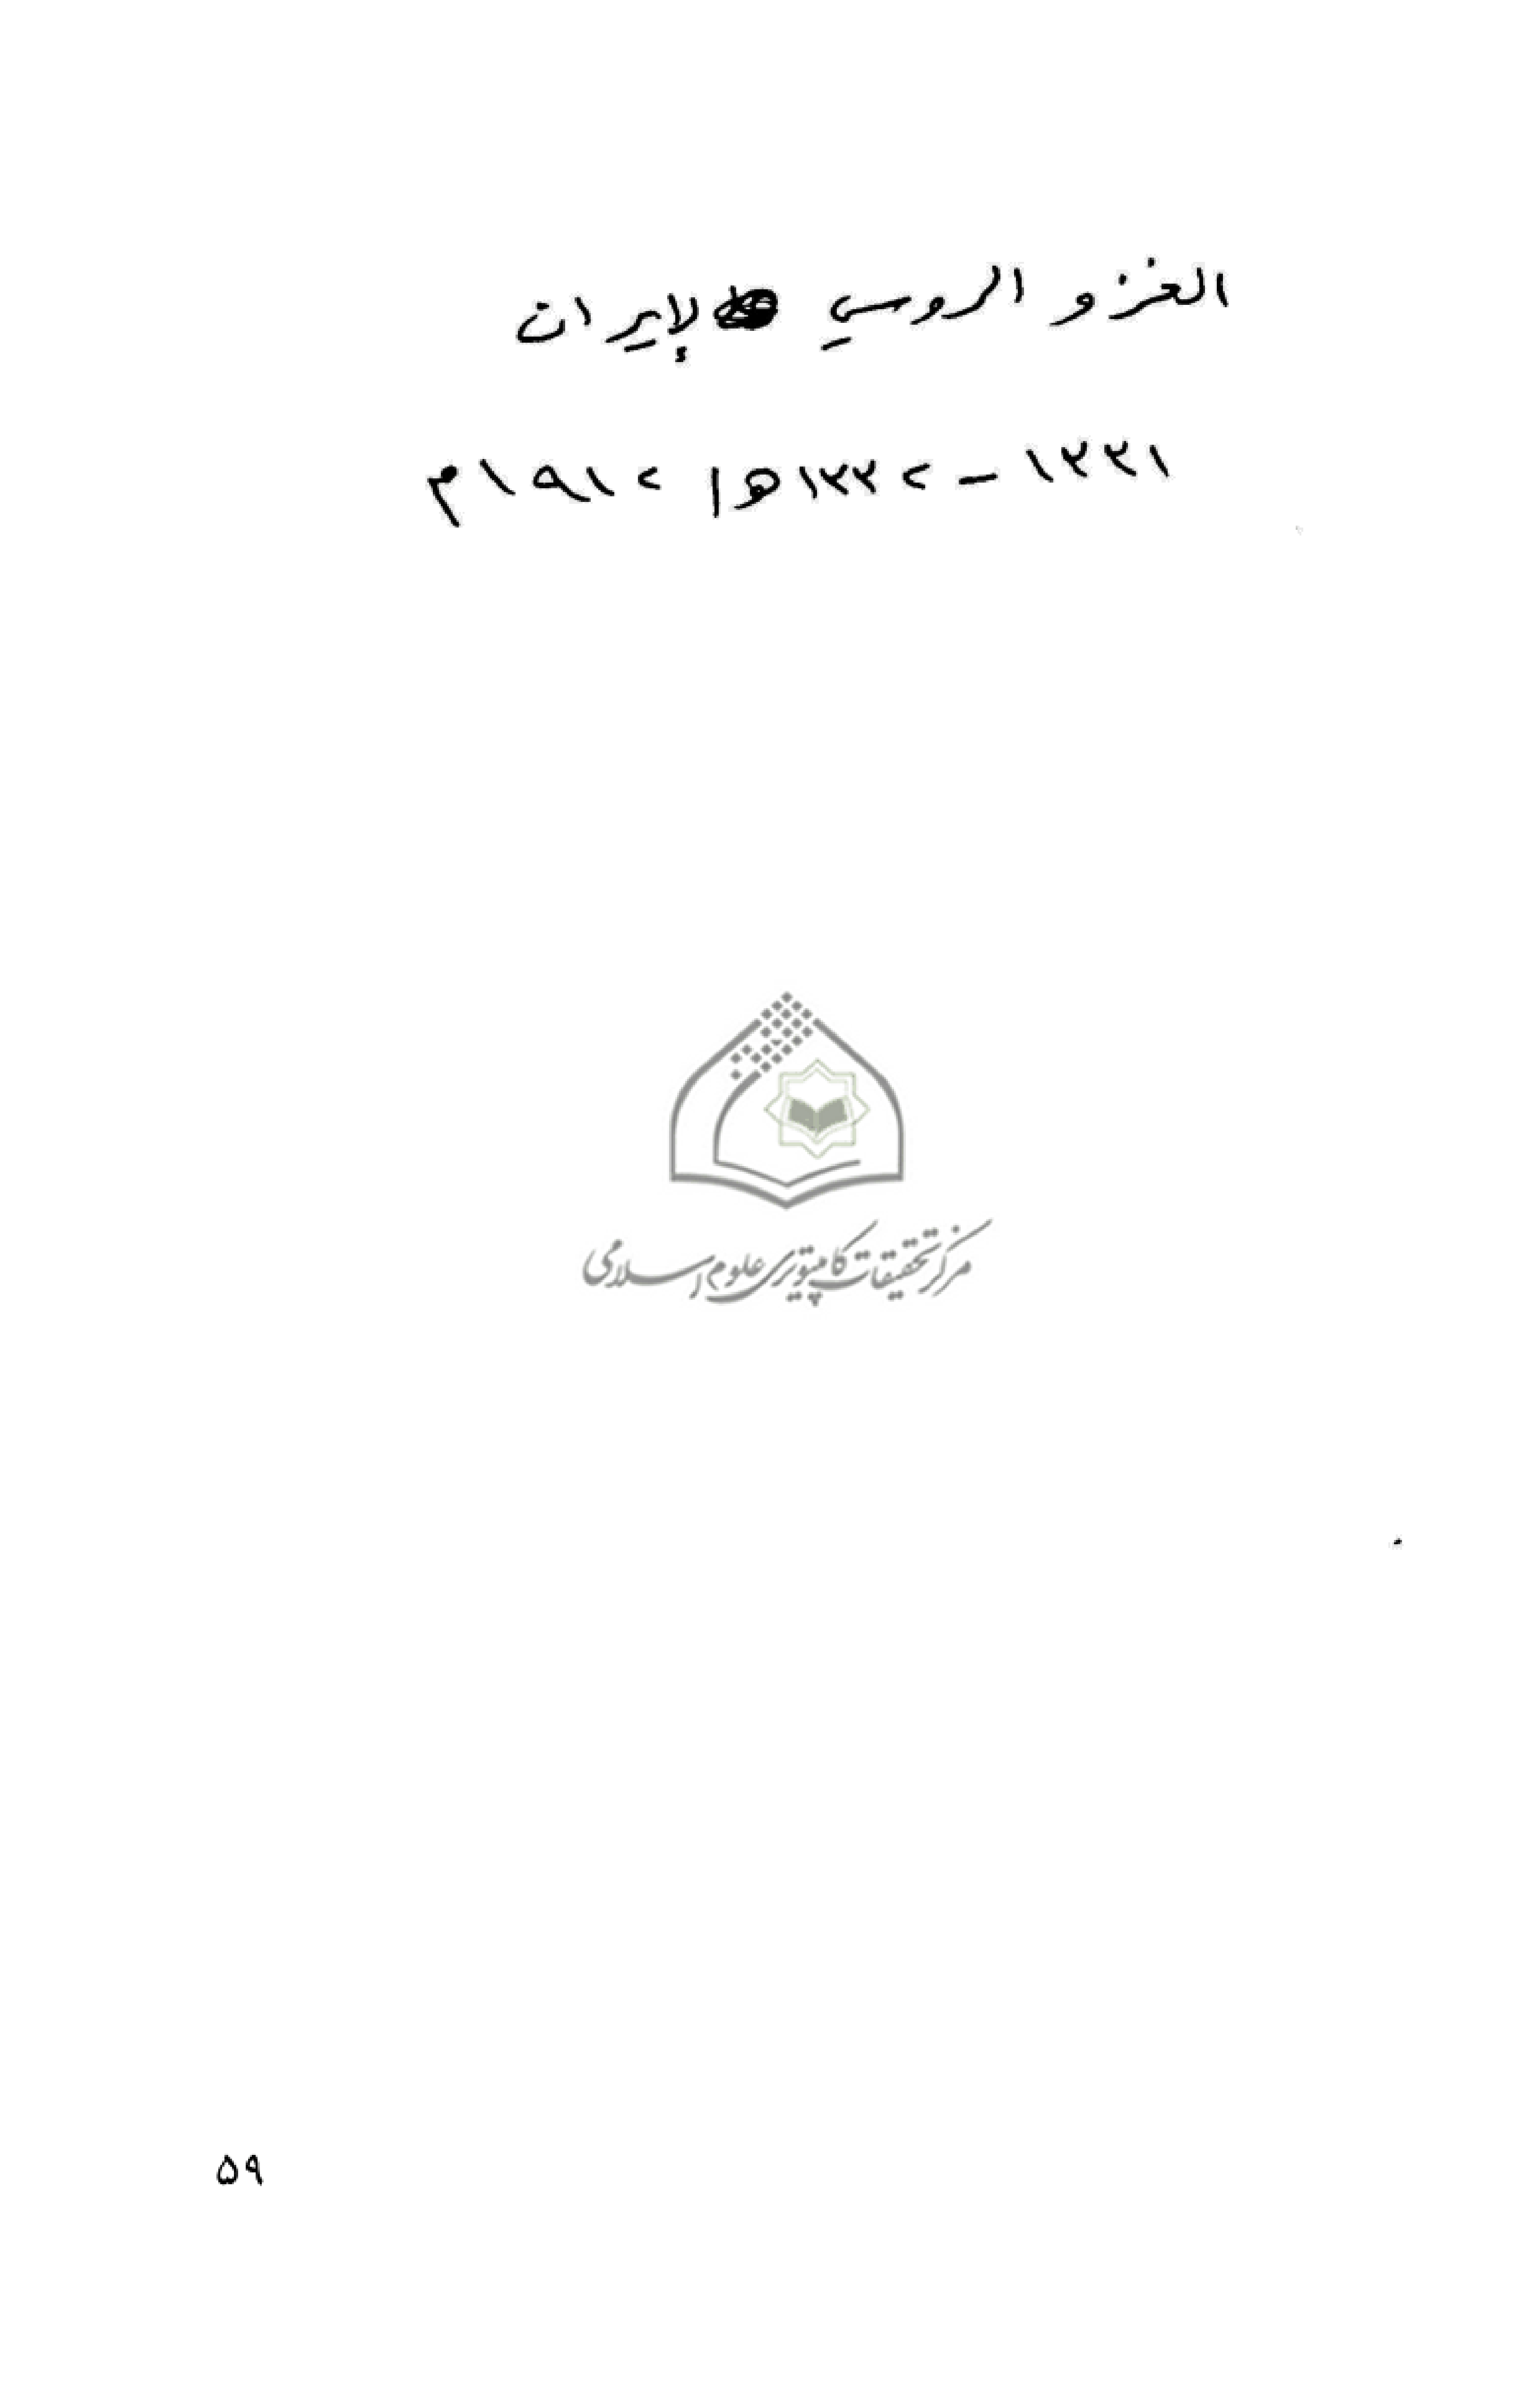 الغزو الروسي لإيران
١٣٣١ – ١٣٣٢ه / ١٩١٢م
مركز تحقيقات كامپيوترى علوم اسلامى
٥٩